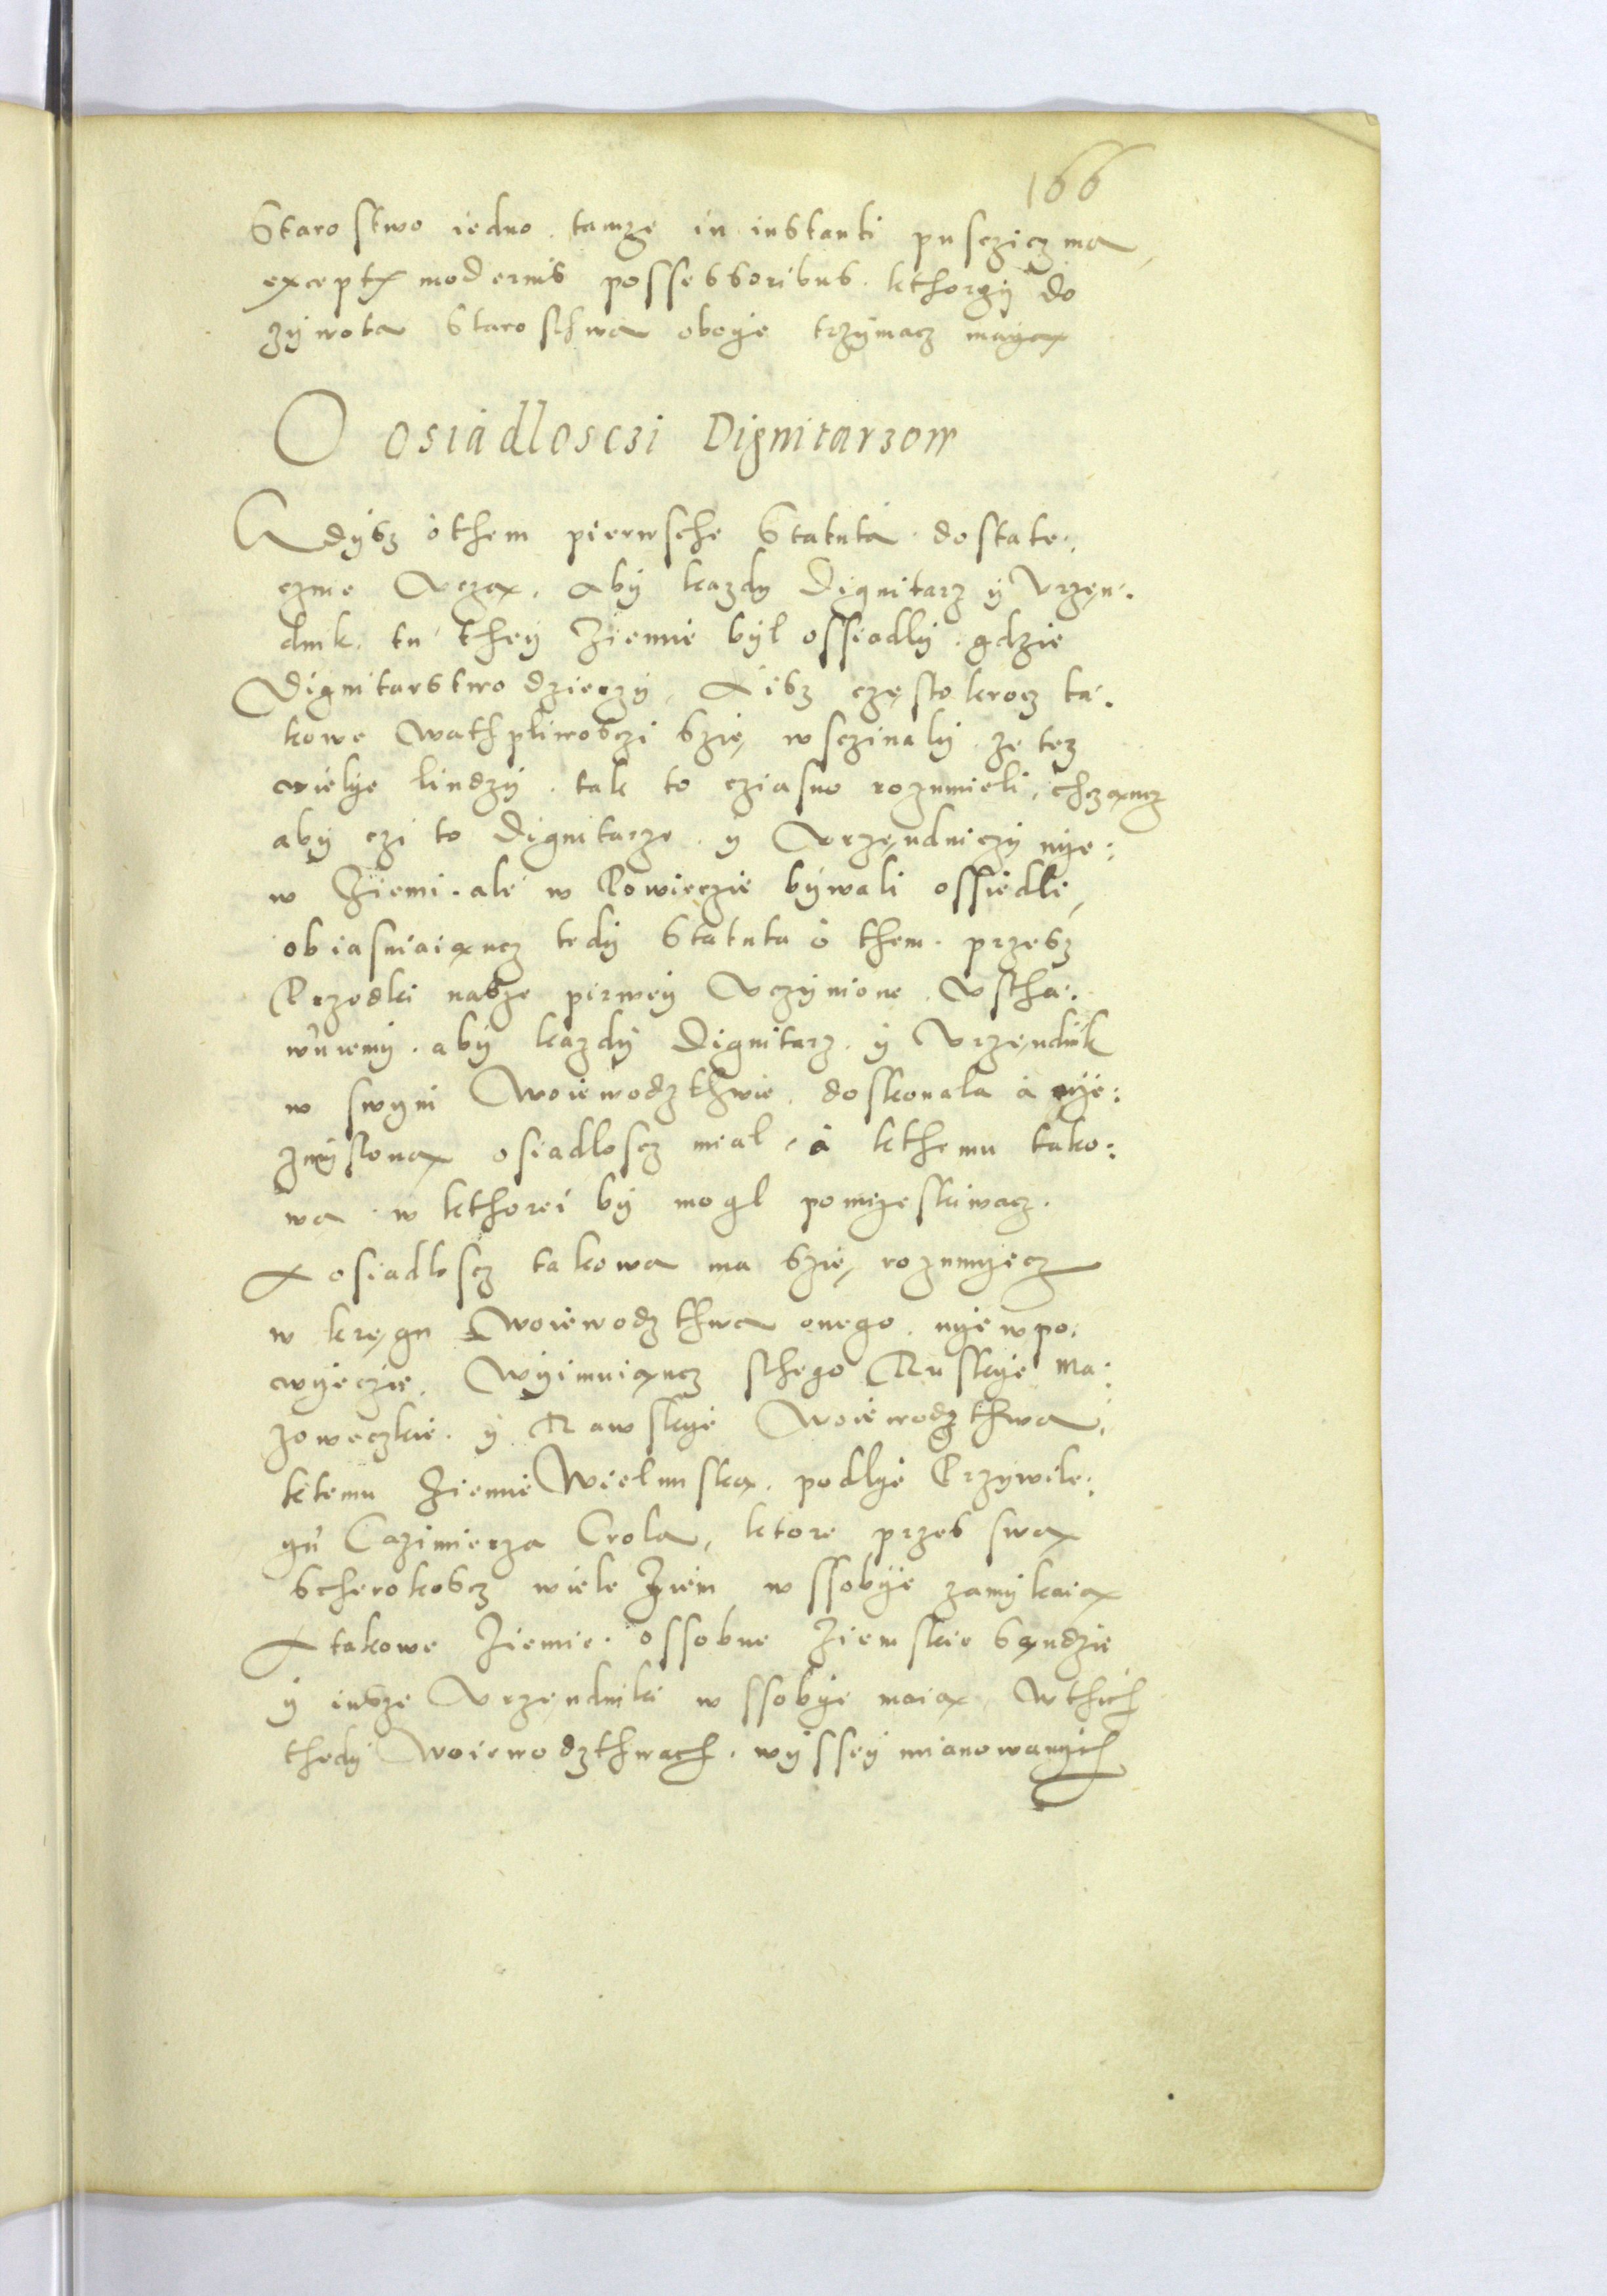 166
Starostwo iedno tamże in instanti pusczicz ma,
exceptis modernis possessoribus. kthorzÿ do
zÿwota Starosthwa oboÿe trzÿmacz maÿą
O osiádlosczi Dignitarzow
Gdÿsz o them pierwsche Statuta dostate:
cznie Uczą, abÿ kazdy Dignitarz ÿ Urzęn:
dnik. tu theÿ Ziemie bÿl ossiadlÿ. gdzie
Dignitarstwo dzierzÿ, A isz częstokrocz ta:
kowe Wathpliwosczi szię wsczinalÿ. ze tez
wielÿe liudzÿ. tak to cziasno rozumieli, chcząncz
abÿ czi to Dignitarze. ÿ Urzęndniczÿ nÿe:
w Ziemi. ale w Powieczie bÿwali ossiedli,
obiasniaiąncz tedÿ Statuta o them. przesz
Przodki nasze pirweÿ Uczÿnione. Ustha:
wuiemÿ. abÿ kazdÿ Dignitarz. ÿ Urzęndnik
w swÿm Woiewodzthwie. doskonala a nÿe:
zmÿsloną osiadloscz mial, a kthemu tako:
wa w kthorei bÿ mogl pomięskiwacz.
A osiadloscz takowa ma szię rozumÿecz
w kręgu Woiewodzthwa onego. nÿe w po:
wÿeczie. Wÿimuiąncz sthego Ruskÿe Ma:
zoweczkie. ÿ Rawskÿe Woiewodzthwa,
ktemu Ziemie Wielunską. podlÿe Przÿwile:
gu Cazimierza Crola, ktore przes swą
scherokoscz wiele Ziem w ssobÿe zamÿkaią
A takowe Ziemie. ossobne Ziemskie Sąndzie
ÿ insze Urzędniki w ssobÿe maią, W thich
thedÿ Woiewodzthwach. wÿsseÿ mianowanÿch